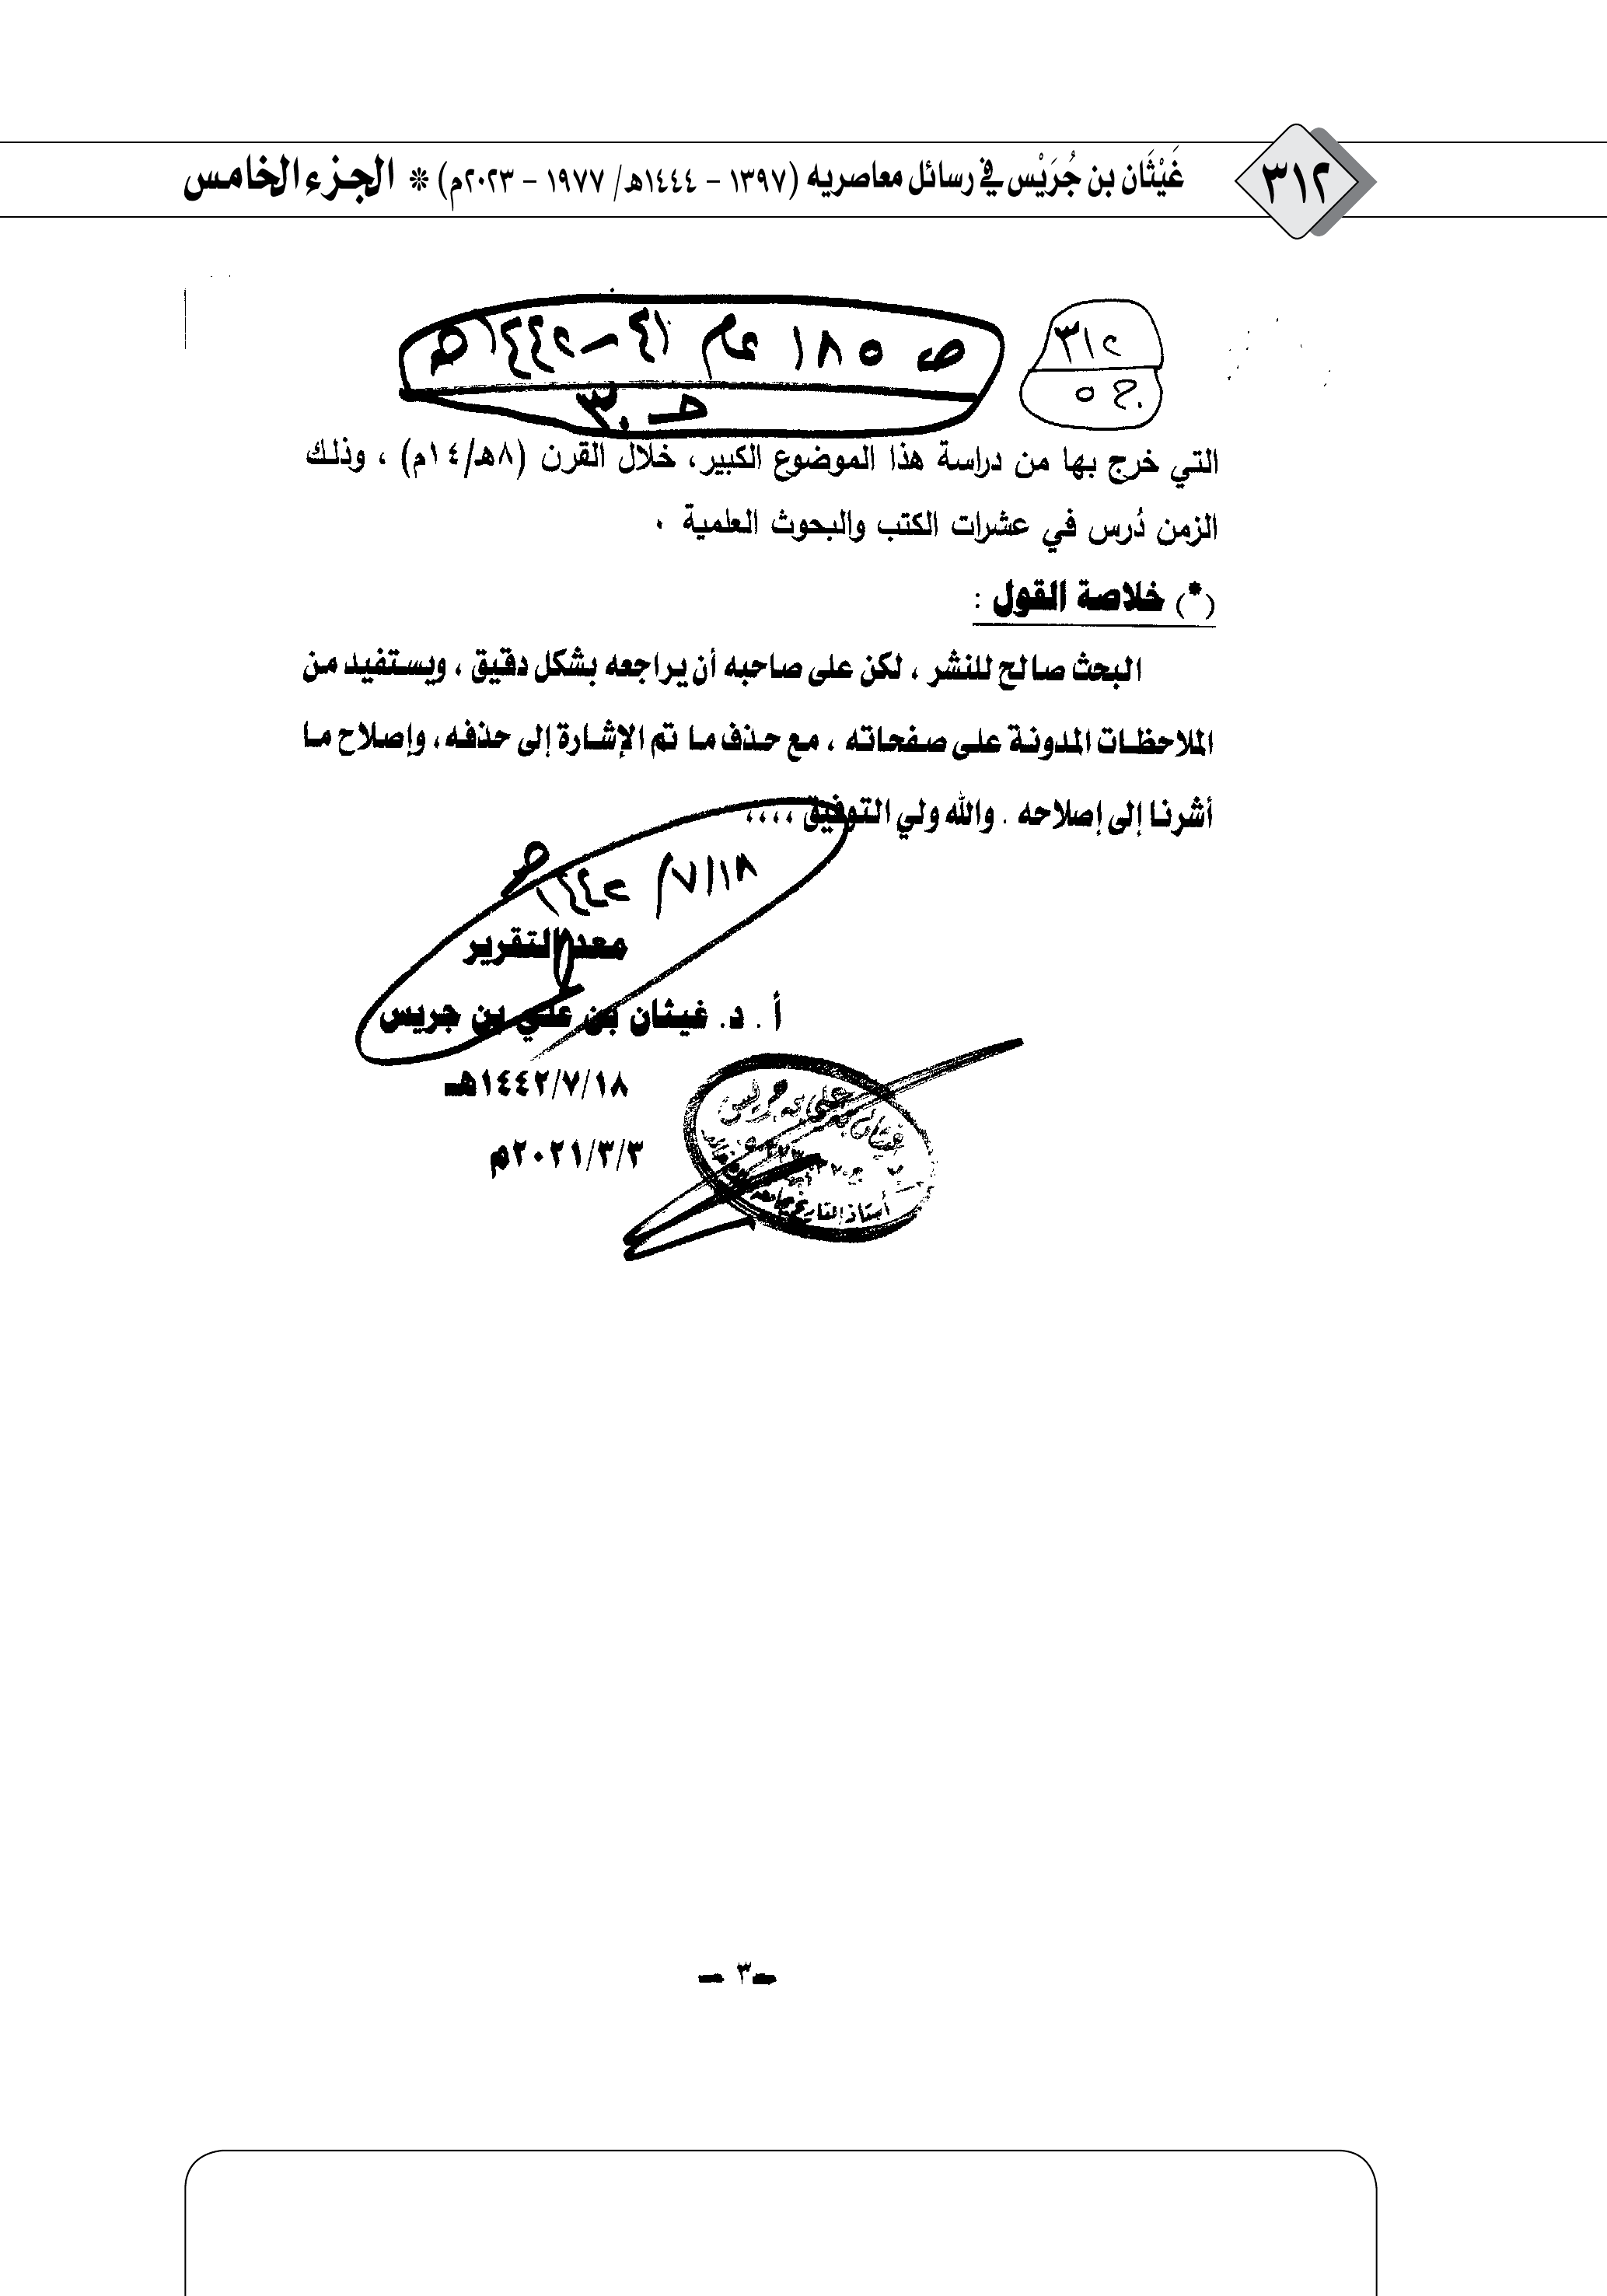 ٣١٢
غَيْثَان بن جُرَيْس في رسائل معاصريه (١٣٩٧ - ١٤٤٤هـ/ ١٩٧٧ - ٢٠٢٣م) ❊ الجزء الخامس
٣١٢
ج ٥
ص ١٨٥ عام ٤١ - ١٤٤٢هـ
التي خرج بها من دراسة هذا الموضوع الكبير، خلال القرن (٨هـ/١٤م) ، وذلك
الزمن دُرس في عشرات الكتب والبحوث العلمية ٠
(*) خلاصة القول :
البحث صالح للنشر ، لكن على صاحبه أن يراجعه بشكل دقيق ، ويستفيد من
الملاحظات المدونة على صفحاته ، مع حذف ما تم الإشارة إلى حذفه ، وإصلاح ما
أشرنا إلى إصلاحه . والله ولي التوفيق ،،،،
١٨/٧/١٤٤٢هـ
معد التقرير
أ . د. غيثان بن علي بن جريس
١٤٤٢/٧/١٨هـ
٢٠٢١/٣/٣م
غيثان بن علي بن جريس
أستاذ التاريخ
-٣ -